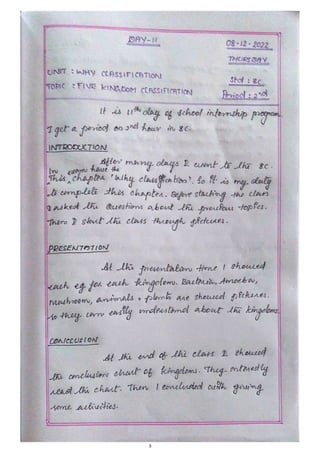 DAY-11
08-12-2022
THURSDAY
UNIT : WHY CLASSIFICATION
Std : 8C
TOPIC : FIVE KINGDOM CLASSIFICATION
Period : 2nd
It is 11th day of school internship program
I get a period on 2nd hour in 8C.
INTRODUCTION
After many days I went to the 8C.
have the
This chapter "Why classification". So it is my duty
to complete this chapter. Before starting the class
I asked the questions about the previous topics.
Then I start the class through pictures.
PRESENTATION
At the presentation time I showed
each eg for each kingdom. Bacteria, Amoeba,
mushroom, animals, plants are showed pictures.
so they can easily understand about the kingdoms.
CONCLUSION
At the end of the class I showed
the conclusion chart of kingdoms. They
read the chart. Then I concluded with giving
some activities.
3